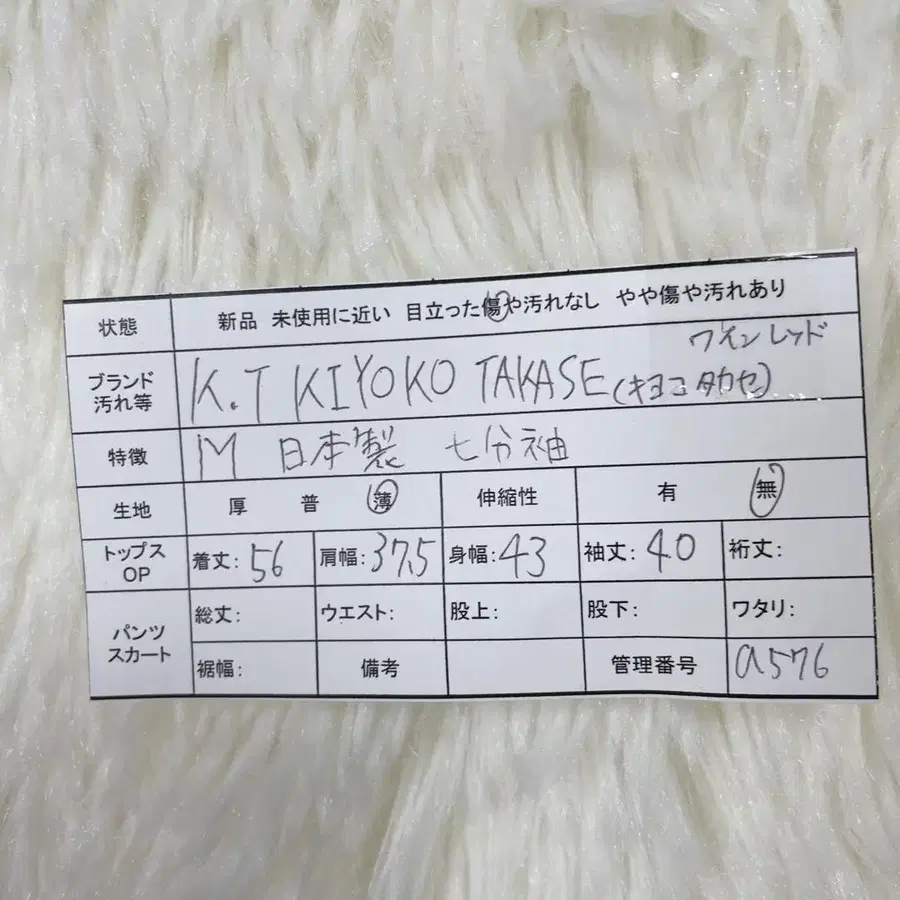 状態 新品 未使用に近い 目立った傷や汚れなし やや傷や汚れあり
ワインレッド
ブランド 汚れ等 K.T KIYOKO TAKASE (キヨコタカセ)
特徴 M 日本製 七分袖
生地 厚 普 薄 伸縮性 有 無
トップス OP 着丈: 56 肩幅: 37.5 身幅: 43 袖丈: 40 裄丈:
パンツ スカート 総丈: ウエスト: 股上: 股下: ワタリ:
裾幅: 備考 管理番号 a576